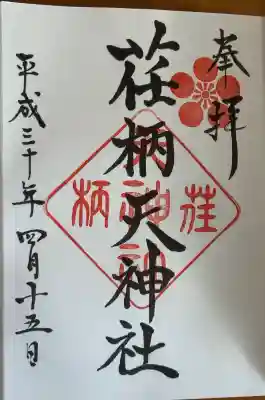 奉拝
荏柄天神社
荏柄神社
平成三十年四月十五日